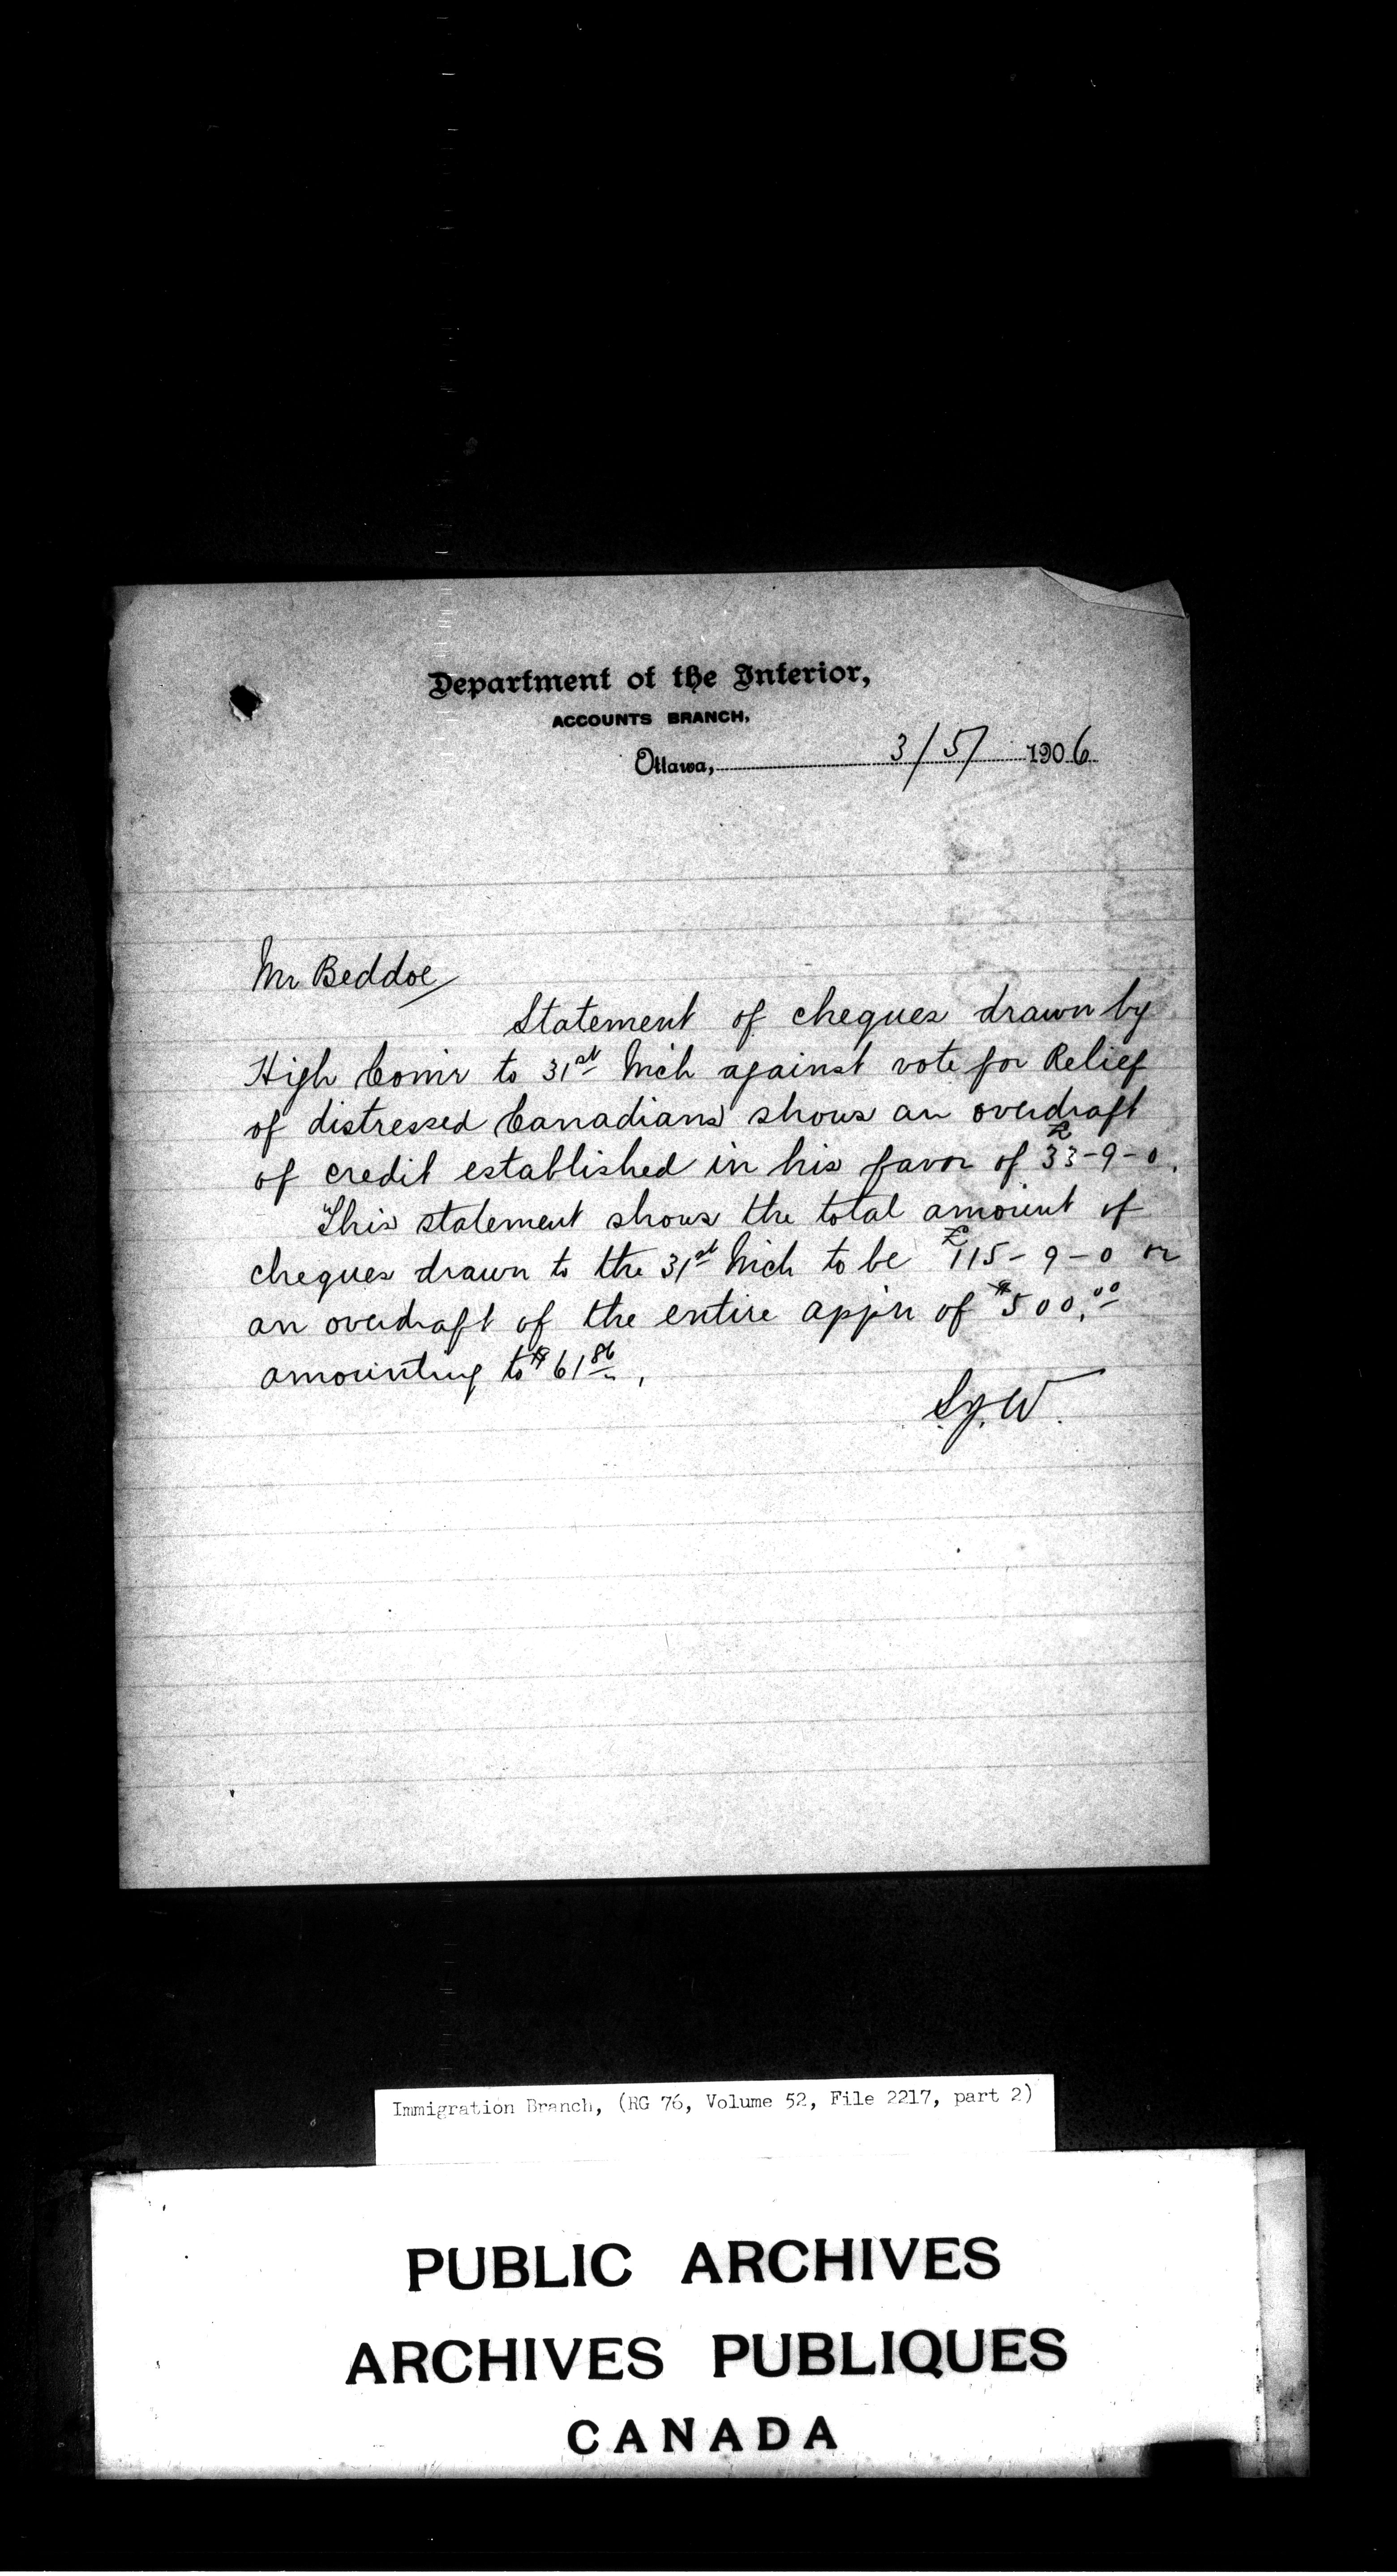 Department of the Interior,
ACCOUNTS BRANCH,
Ottawa, 3/5/ 1906
Mr Beddoe
Statement of cheques drawn by
High Comr to 31st Mch against vote for Relief
of distressed Canadians shows an overdraft
of credit established in his favor of £33-9-0.
This statement shows the total amount of
cheques drawn to the 31st Mch to be £115-9-0 or
an overdraft of the entire appn of $500.00
amounting to $61 86.
Immigration Branch, (RG 76, Volume 52, File 2217, part 2)
PUBLIC ARCHIVES
ARCHIVES PUBLIQUES
CANADA